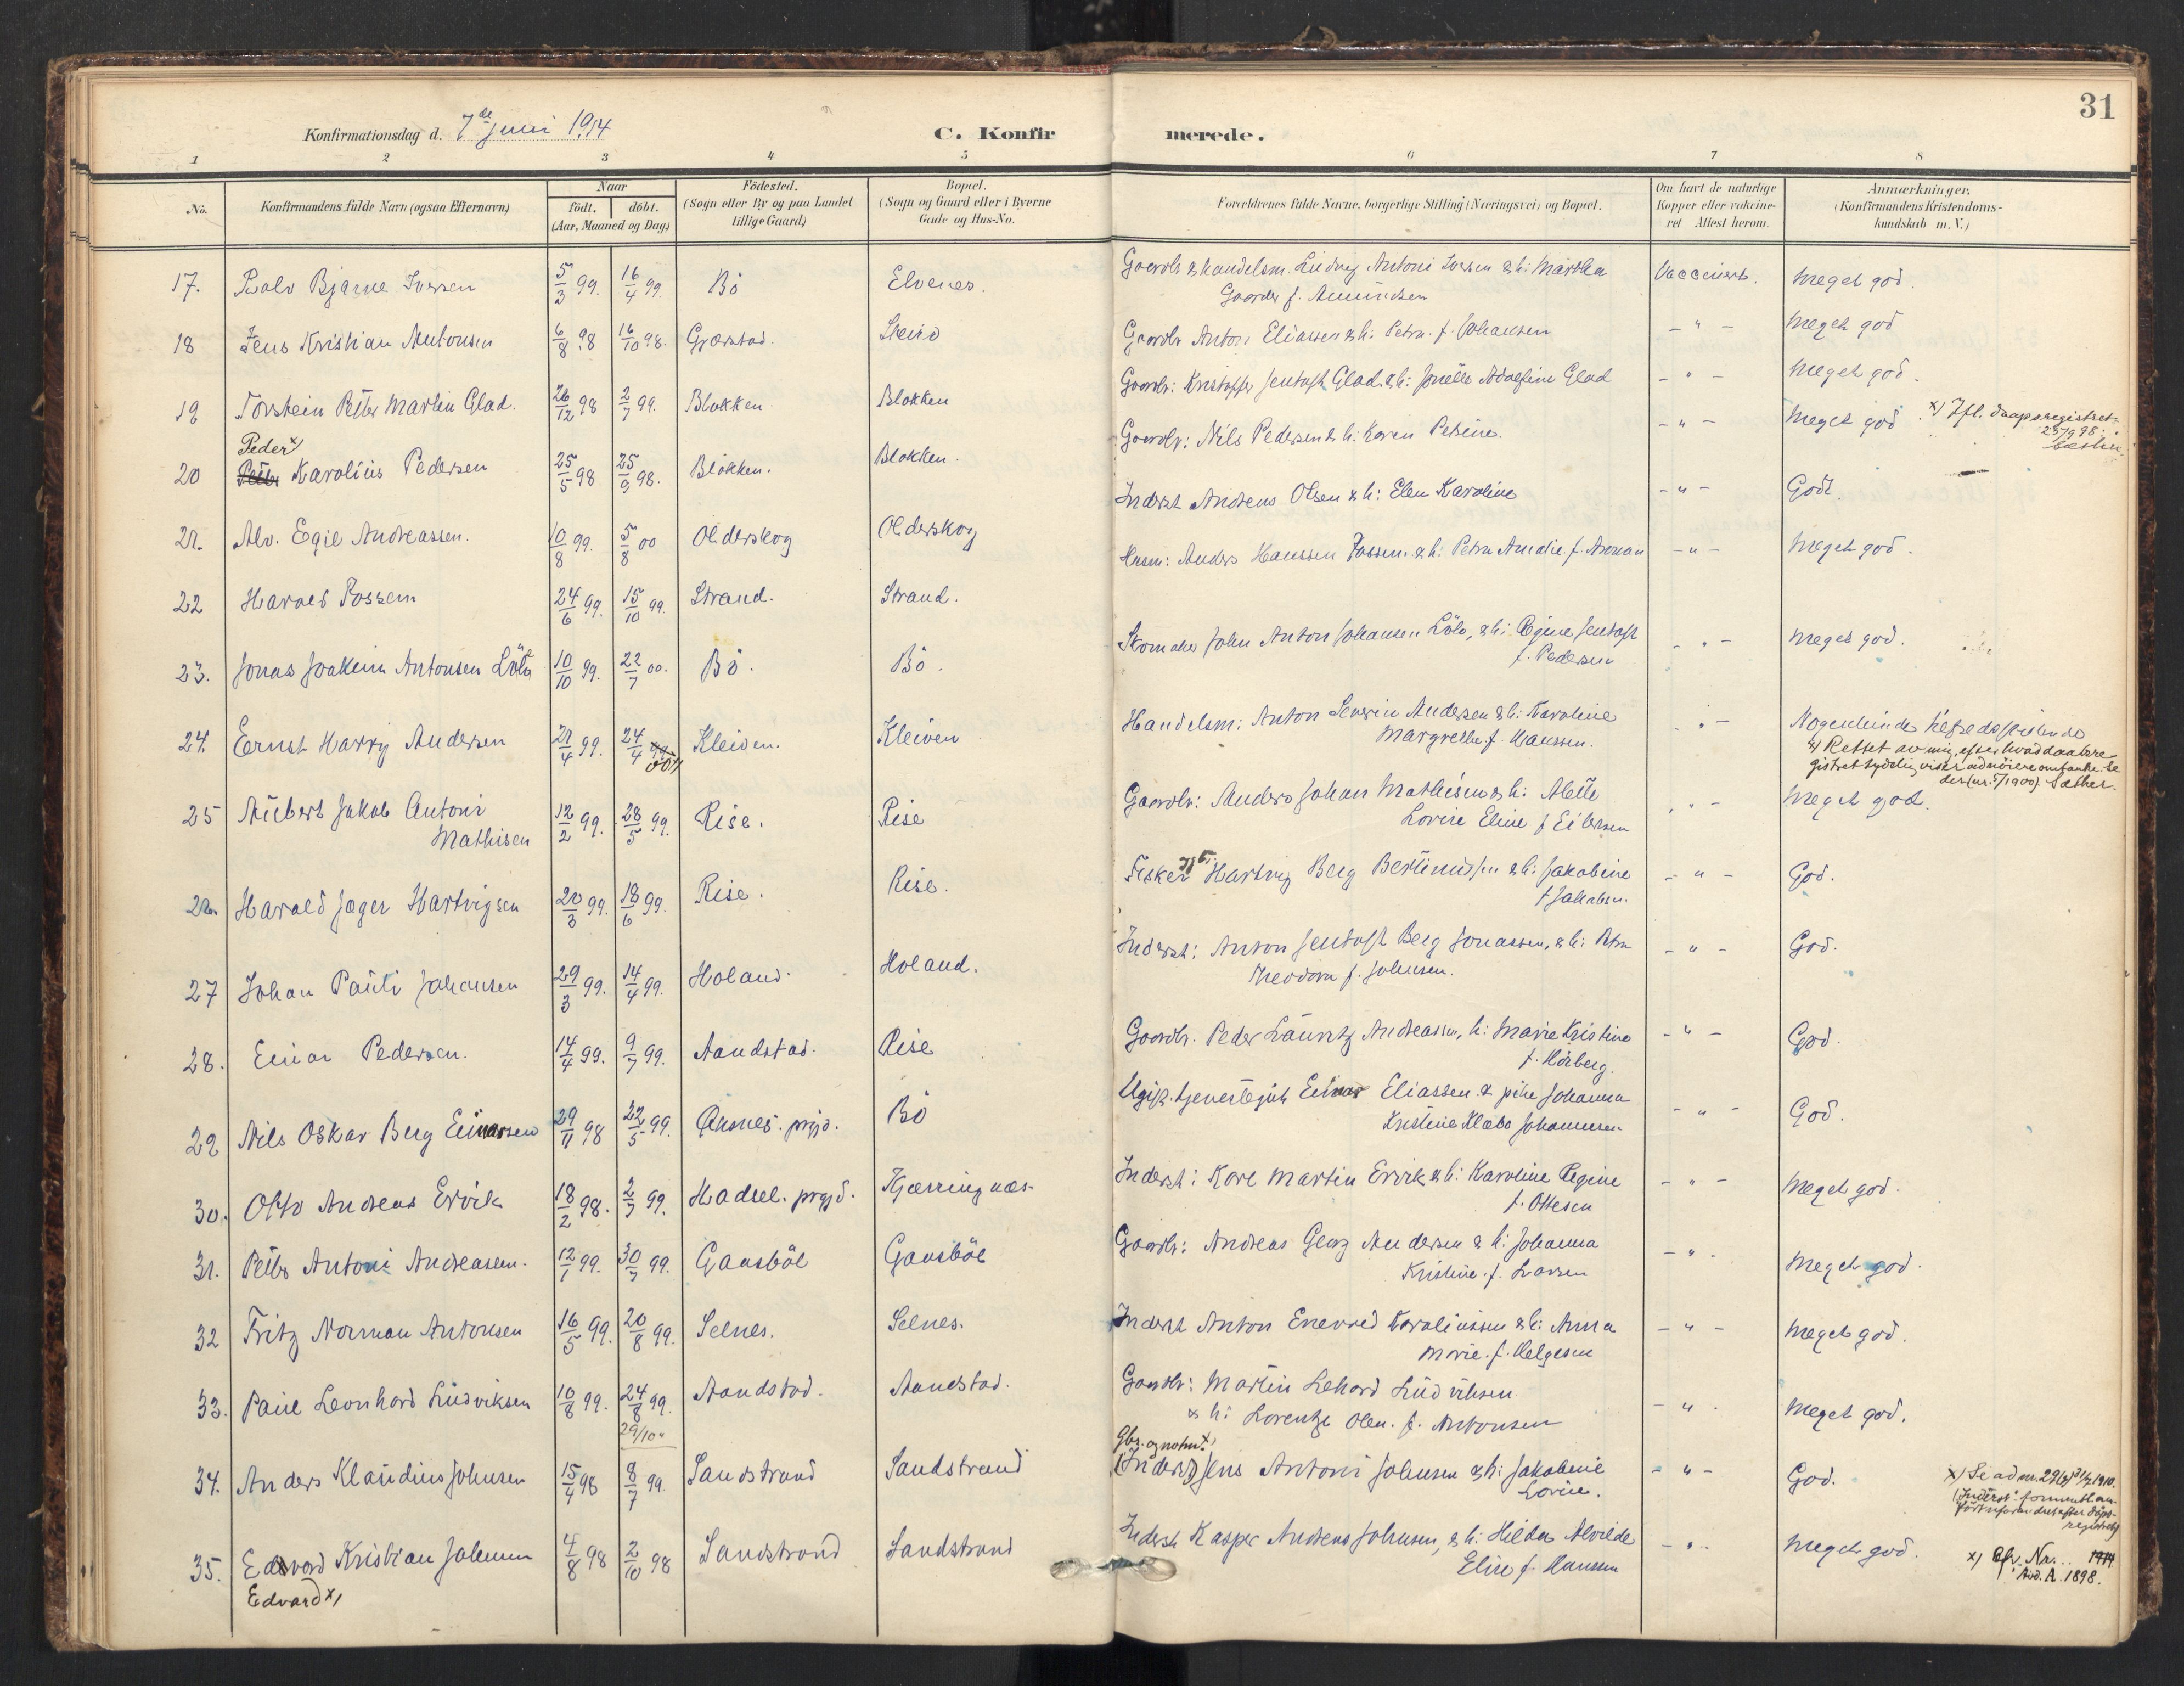 31
Konfirmationsdag d. 7de juni 1914
C. Konfir merede.
1 2 3 4 5 6 7 8
No. Konfirmandens fulde Navn (ogsaa Efternavn) Naar födt. döbt. (Aar, Maaned og Dag) Födested. (Sogn eller By og paa Landet tillige Gaard) Bopæl. (Sogn og Gaard eller i Byerne Gade og Hus-No. Forældrenes fulde Navne, borgerlige Stilling (Næringsvei) og Bopæl. Om havt de naturlige Kopper eller vakcineret Attest herom. Anmærkninger. (Konfirmandens Kristendomskundskab m. V.)
17. Rolv Bjarne Iversen 5/3 99. 16/4 99. Bö Elvenes. Gaardb & handelsm. Ludvig Antoni Iversen & h: Martha Vaccinert. Meget god.
Gaarder f. Amundsen
18 Jens Kristian Antonsen 6/8 98 16/10 98. Gjærstad. Steiro Gaardb Anton Eliassen & h: Petra f. Johansen - " - Meget god
19 Torstein Peter Martin Glad. 26/12 98 2/7 99. Blokken. Blokken Gaardb: Kristoffer Jentoft Glad & h: Adolfine Glad - " - Meget god.
Peder x)
20 Peter Karolius Pedersen 25/5 98 25/9 98. Blokken. Blokken. Gaardb: Nils Pedersen & h: Karen Petrine. - " - Meget god
x) Ifl. daapsregistret
25/9 98.
21. Alv. Egil Andreassen. 10/8 99. 5/8 00 Olderskog Olderskog Inderst Andreas Olsen & h: Elen Karoline - " - Godt.
22 Harald Fossem 24/6 99. 15/10 99. Strand. Strand. Husm: Anders Hanssen Fossem & h: Petra Amalie f. - " - Meget god.
23. Jonas Joakim Antonsen Lölo 10/10 99. 22/7 00. Bö. Bö. Skomaker John Anton Johansen Lölo, & h: Regine Jentoft - " - Meget god.
f. Pedersen
24. Ernst Harry Andersen 21/4 99. 24/4 99 00 Kleiven. Kleiven Handelsm: Anton Severin Andersen & h: Karoline " - Nogenlunde
Margrethe f. Hanssen.
x) Rettet av mig, efter hvad daabsregistret tydelig viser
(nr. 5/1900) Sæther.
25 Aubert Jakob Antoni 12/2 99. 28/5 99. Rise. Rise Gaardb: Anders Johan Mathisen & h: Alette " - Meget god.
Mathisen Lovise Eline f Eilersen
26 Harald Jæger Hartvigsen 20/3 99. 18/6 99. Rise. Rise. Fisker Hartvig Berg Bertinussen & h: Jakobine - " - God.
f Jakobsen.
27 Johan Pauli Johansen 29/3 99. 14/4 99. Holand. Holand. Inderst: Anton Jentoft Berg Jonassen, & h: Petra - " - God.
Theodora f. Johnsen.
28. Einar Pedersen. 14/4 99. 9/7 99. Aandstad. Rise Gaardb. Peder Lauritz Andreassen, h: Marie Kristine - " - God.
f. Hörberg.
29 Nils Oskar Berg Einarsen 29/11 98 22/5 99. Öksnes. prgjd. Bö Ugift. tjenestegut Einar Eliassen & pike Johanna - " - God.
Kristine Klæbo Johannesen
30. Otto Andreas Ervik 18/2 98. 2/7 99. Hadsel. prgjd. Kjærringnæs Inderst: Karl Martin Ervik & h: Karoline Regine - " - Meget god.
f. Ottesen
31. Peder Antoni Andreassen. 12/1 99. 30/7 99. Gausböl Gausböl Gaardb: Andreas Georg Andersen & h: Johanna - " . Meget god.
Kristine. f. Larsen
32 Fritz Norman Antonsen 16/5 99. 20/8 99. Selnes. Selnes. Inderst Anton Enevold Karoliussen & h: Anna - " - Meget god.
Marie. f. Helgesen
33. Paul Leonhard Ludviksen 10/8 99. 24/8 99. Aandstad. Aandstad. Gaardb: Martin Lehard Ludviksen - " . Meget god.
29/10 " & h: Lorentze Olen. f. Antonsen
Gbr. og notm. x)
34. Anders Klaudius Johnsen 15/4 98 8/7 99. Sandstrand Sandstrand (Inderst) Jens Antoni Johnsen & h: Jakobine - " - God.
Lovise.
x) Se ad nr. 29 1910.
"Inderst" formentl. an-
35. Edvard Kristian Johnsen 4/8 98 2/10 98 Sandstrand Sandstrand Inderst Kasper Andreas Johnsen, & h: Hilda Alvilde - " . Meget god.
Edvard x) Elise f. Hanssen
x) Cfr. Nr... 1914
A. 1898.